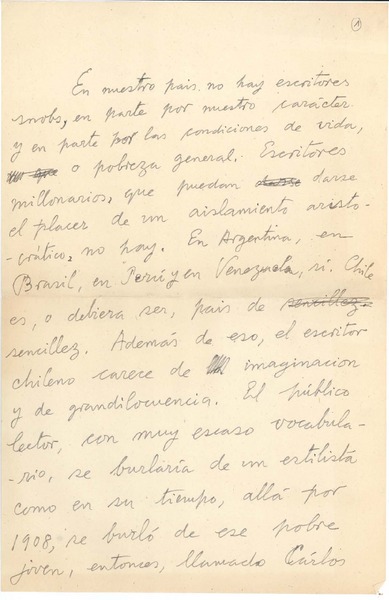 1
En nuestro pais no hay escritores
snobs, en parte por nuestro carácter
y en parte por las condiciones de vida,
o pobreza general. Escritores
millonarios, que puedan darse
el placer de un aislamiento aristo-
-crático, no hay. En Argentina, en
Brasil, en Perú y en Venezuela, si. Chile
es, o debiera ser, pais de sencillez
sencillez. Además de eso, el escritor
chileno carece de imaginacion
y de grandilocuencia. El público
lector, con muy escaso vocabula-
-rio, se burlaría de un estilista
como en su tiempo, allá por
1908, se burló de ese pobre
joven, entonces, llamado Cárlos